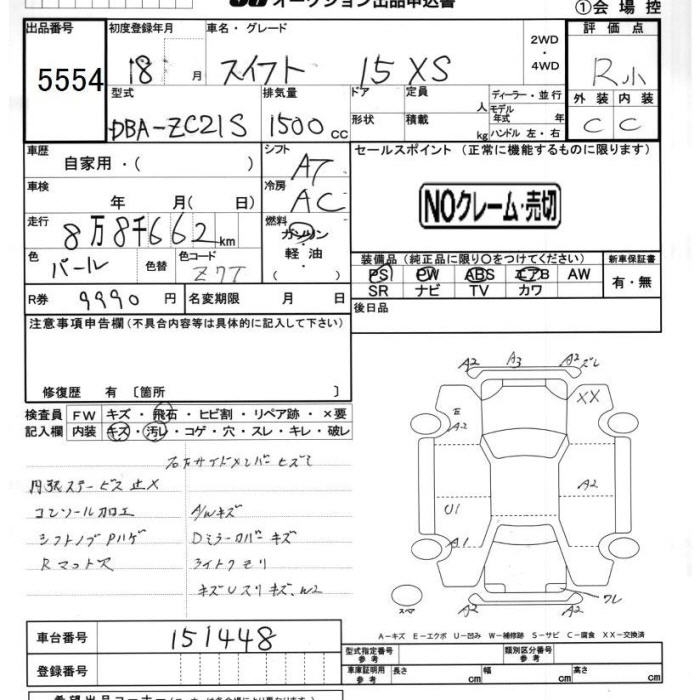 オークション出品申込書
①会場控
出品番号 初度登録年月 車名・グレード 2WD・4WD 評価点
5554 18 月 スイフト 15 XS R小
型式 排気量 ドア形状 定員 人 積載 kg ディーラー・並行 モデル年式 年 ハンドル 左・右 外装 内装
DBA-ZC21S 1500cc C C
車歴 自家用・( ) シフト AT セールスポイント (正常に機能するものに限ります)
車検 年 月( 日) 冷房 AC
NOクレーム・売切
走行 8万8千662km 燃料 ガソリン・軽油・( )
色 パール 色替 色コード Z7T
装備品 (純正品に限り○をつけてください) 新車保証書
PS PW ABS エアB AW 有・無
SR ナビ TV カワ
R券 9990円 名変期限 月 日
後日品
注意事項申告欄(不具合内容等は具体的に記入して下さい)
修復歴 有 〔箇所 〕
検査員 FW キズ・飛石・ヒビ割・リペア跡・×要
記入欄 内装 キズ・汚レ・コゲ・穴・スレ・キレ・破レ
コンソール加工 A/Wキズ
シフトノブPハゲ Dミラーカバーキズ
Rマット欠 ライトクモリ
A2 A3 A2 ズレ
XX
A2
A2
U1
A1
ワレ
A2 A2
A-キズ E-エクボ U-凹み W-補修跡 S-サビ C-腐食 XX-交換済
車台番号 151448
型式指定番号 参考 類別区分番号 参考
登録番号
車庫証明用 参考 長さ cm 幅 cm 高さ cm